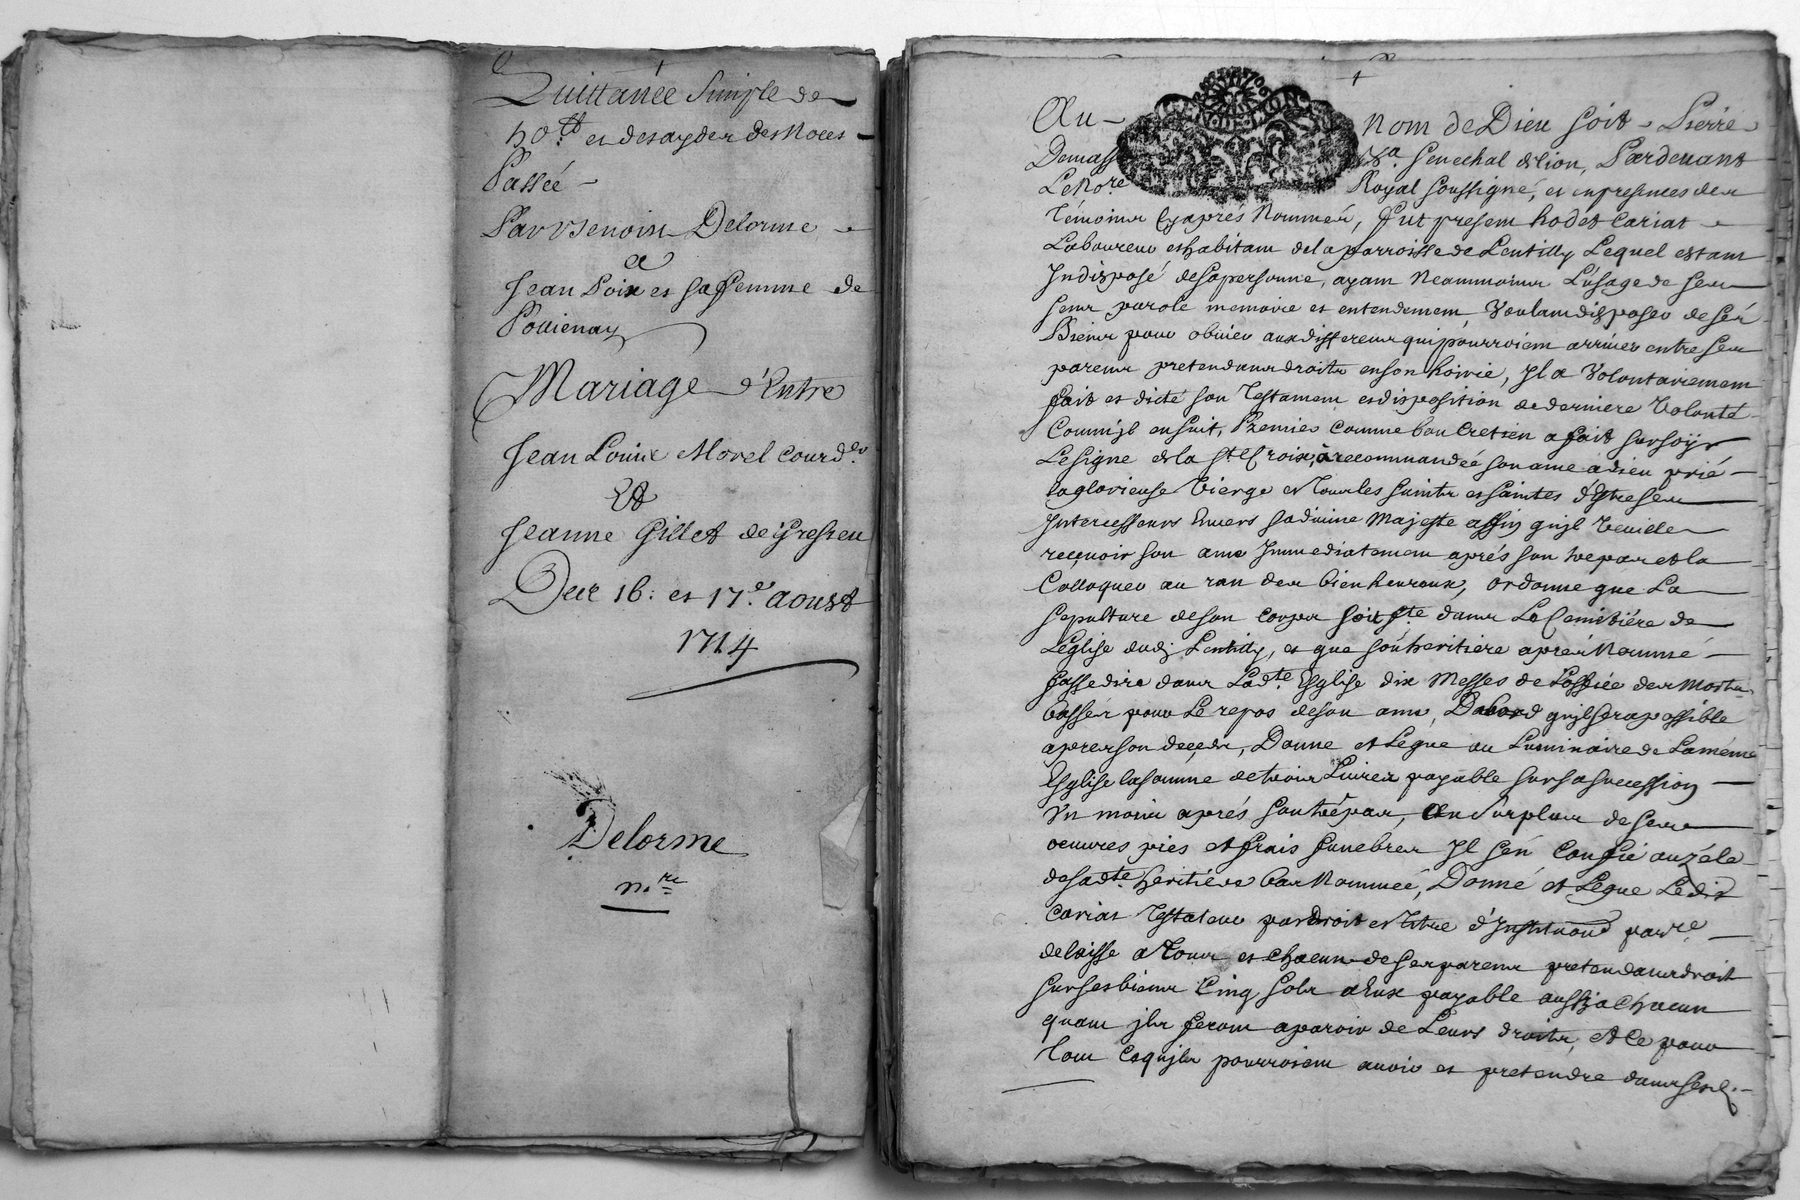 Quittance Simple de
50.tt et des ayder des Noces
Passée
Par Benoist Delorme
a
Jean Poix et sa femme de
Pollienay
Mariage d'Entre
Jean Louis Morel Courd.er
Et
Jeanne Gillet de Gresieu
Des 16: et 17.e aoust
1714
Delorme
n.re
Au Nom de Dieu soit Pierre
Demass Senechal de lion, Pardevant
Le No.re Royal soussigné, et en presences des
Témoins Cy aprés Nommés, fut present Cariat
Laboureur et habitant de la parroisse de Lentilly Lequel estant
Indisposé de sa personne, ayant Neammoins L'usage de ses
sens parole memoire et entendement, Voulant disposer de sés
Biens pour obvier aux differens qui pourroient arriver entre ses
parens pretendans droits en son hoirie, Il a Volontairement
fait et dicté son Testament et disposition de derniere Volonté
Comm'jl ensuit, Premier comme bon Cretien a fait sur soÿ
Le signe de la S.te Croix, à recommandée son ame a dieu prié
la glorieuse Vierge et tous les saints et saintes d'Estre ses
Intercesseurs Envers sa divine Majesté affin qu'jl Veuille
reçevoir son ame Immediatement aprés son trepas et la
Colloquer au ran des bienheureux, ordonne que La
sepulture de son corps soit f.te dans Le Cemitiére de
L'eglise dud. Lentilly, et que son heritiere aprés Nommé
fasse dire dans Lad.te Esglise dix Messes de L'office des Morts
basses pour Le repos de son ame, Dabord qu'jl sera possible
apres son deçeds, Donne et Legue au Luminaire de La méme
Esglise la somme de trois Livres payable sur sa succession
Un mois aprés son trépas, Au Surplus de ses
oeuvres pies et frais funebres Il s'én Confie au zéle
de sad.te heritiére bas Nommeé, Donné et Legue Ledit
Cariat Testateur par droit et titre d'Institu.on par.re
delaisse a Tous et chacun de ses parens pretendans droit
sur ses biens Cinq sols a Eux payable aussj a Chacun
quant jls feront aparoir de Leurs droits, et Ce pour
tout Ce qu'jls pourroient avoir et pretendre dans ses